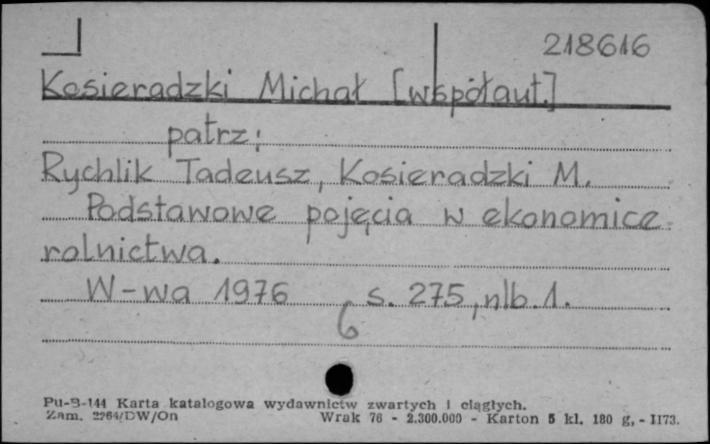 218616
Kosieradzki Michał [współaut.]
patrz:
Rychlik Tadeusz, Kosieradzki M.
Podstawowe pojęcia w ekonomice
rolnictwa.
W-wa 1976 s. 275, nlb. 1.
6
Pu-B-144 Karta katalogowa wydawnictw zwartych i ciągłych.
Zam. 2264/DW/On Wrak 76 - 2.300.000 - Karton 5 kl. 180 g, - II73.